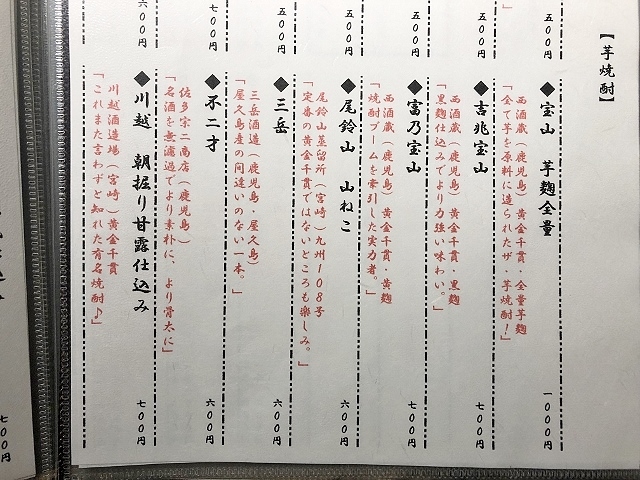 【芋焼酎】
五〇〇円
◆宝山 芋麹全量
一〇〇〇円
西酒蔵(鹿児島)黄金千貫・全量芋麹
「全て芋を原料に造られたザ・芋焼酎!」
五〇〇円
◆吉兆宝山
七〇〇円
西酒蔵(鹿児島)黄金千貫・黒麹
「黒麹仕込みでより力強い味わい。」
五〇〇円
◆富乃宝山
七〇〇円
西酒蔵(鹿児島)黄金千貫・黄麹
「焼酎ブームを牽引した実力者。」
五〇〇円
◆尾鈴山 山ねこ
六〇〇円
尾鈴山蒸留所(宮崎)九州108号
「定番の黄金千貫ではないところも楽しみ。」
五〇〇円
◆三岳
六〇〇円
三岳酒造(鹿児島・屋久島)
「屋久島産の間違いのない一本。」
七〇〇円
◆不二才
六〇〇円
佐多宗二商店(鹿児島)
「名酒を無濾過でより素朴に、より骨太に」
六〇〇円
◆川越 朝掘り甘露仕込み
七〇〇円
川越酒造場(宮崎)黄金千貫
「これまた言わずと知れた有名焼酎♪」
七〇〇円